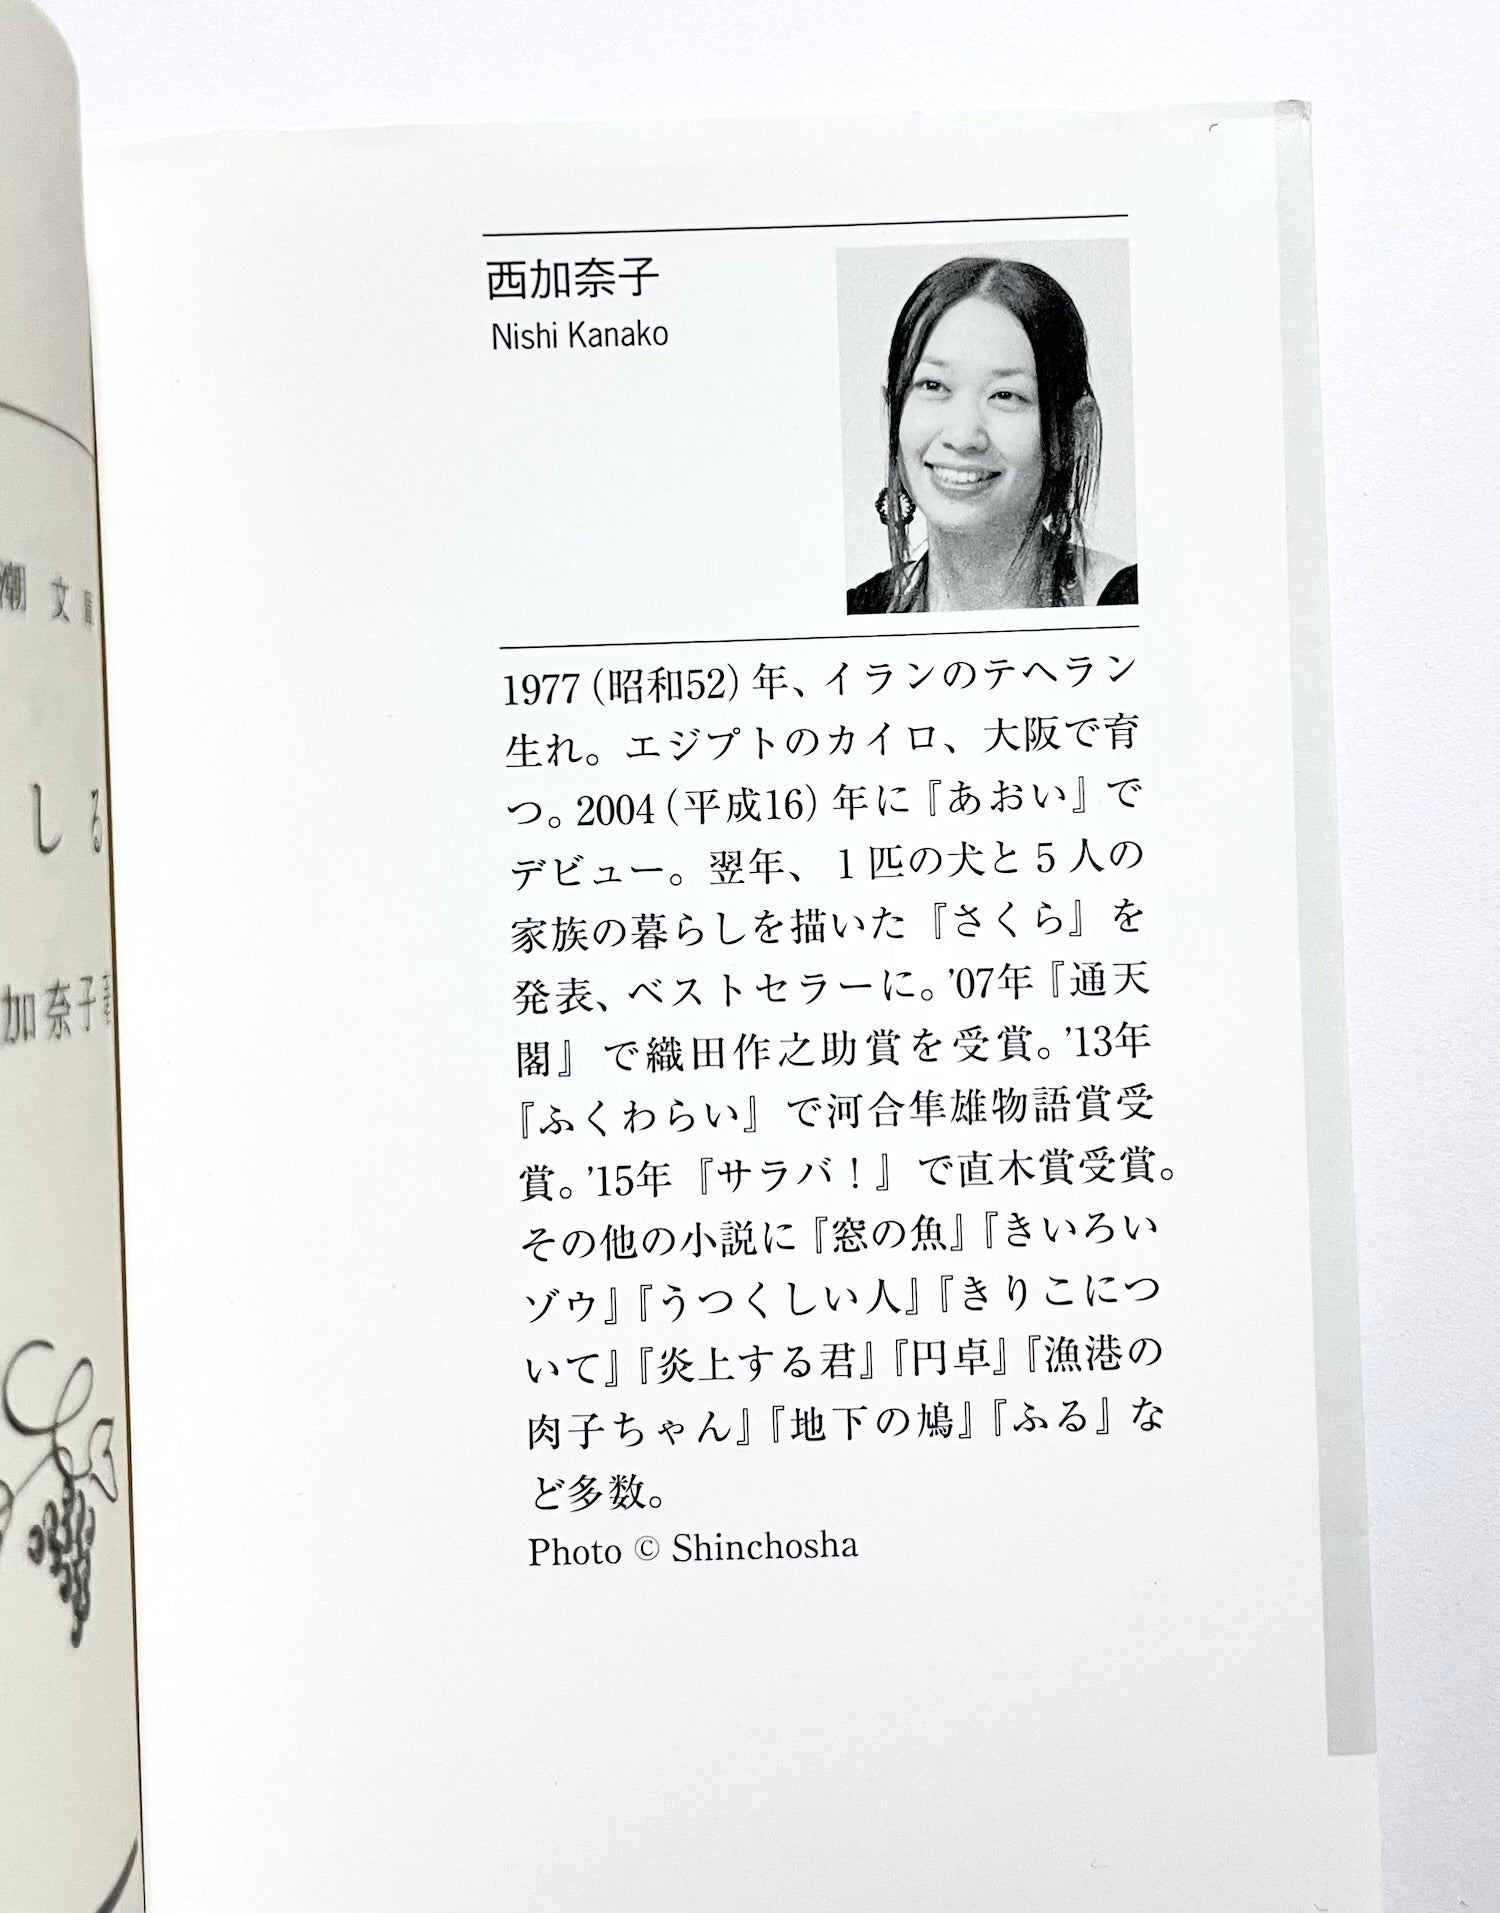 西加奈子
Nishi Kanako
1977（昭和52）年、イランのテヘラン
生れ。エジプトのカイロ、大阪で育
つ。2004（平成16）年に『あおい』で
デビュー。翌年、1匹の犬と5人の
家族の暮らしを描いた『さくら』を
発表、ベストセラーに。’07年『通天
閣』で織田作之助賞を受賞。’13年
『ふくわらい』で河合隼雄物語賞受
賞。’15年『サラバ！』で直木賞受賞。
その他の小説に『窓の魚』『きいろい
ゾウ』『うつくしい人』『きりこにつ
いて』『炎上する君』『円卓』『漁港の
肉子ちゃん』『地下の鳩』『ふる』な
ど多数。
Photo © Shinchosha
潮文
しる
加奈子